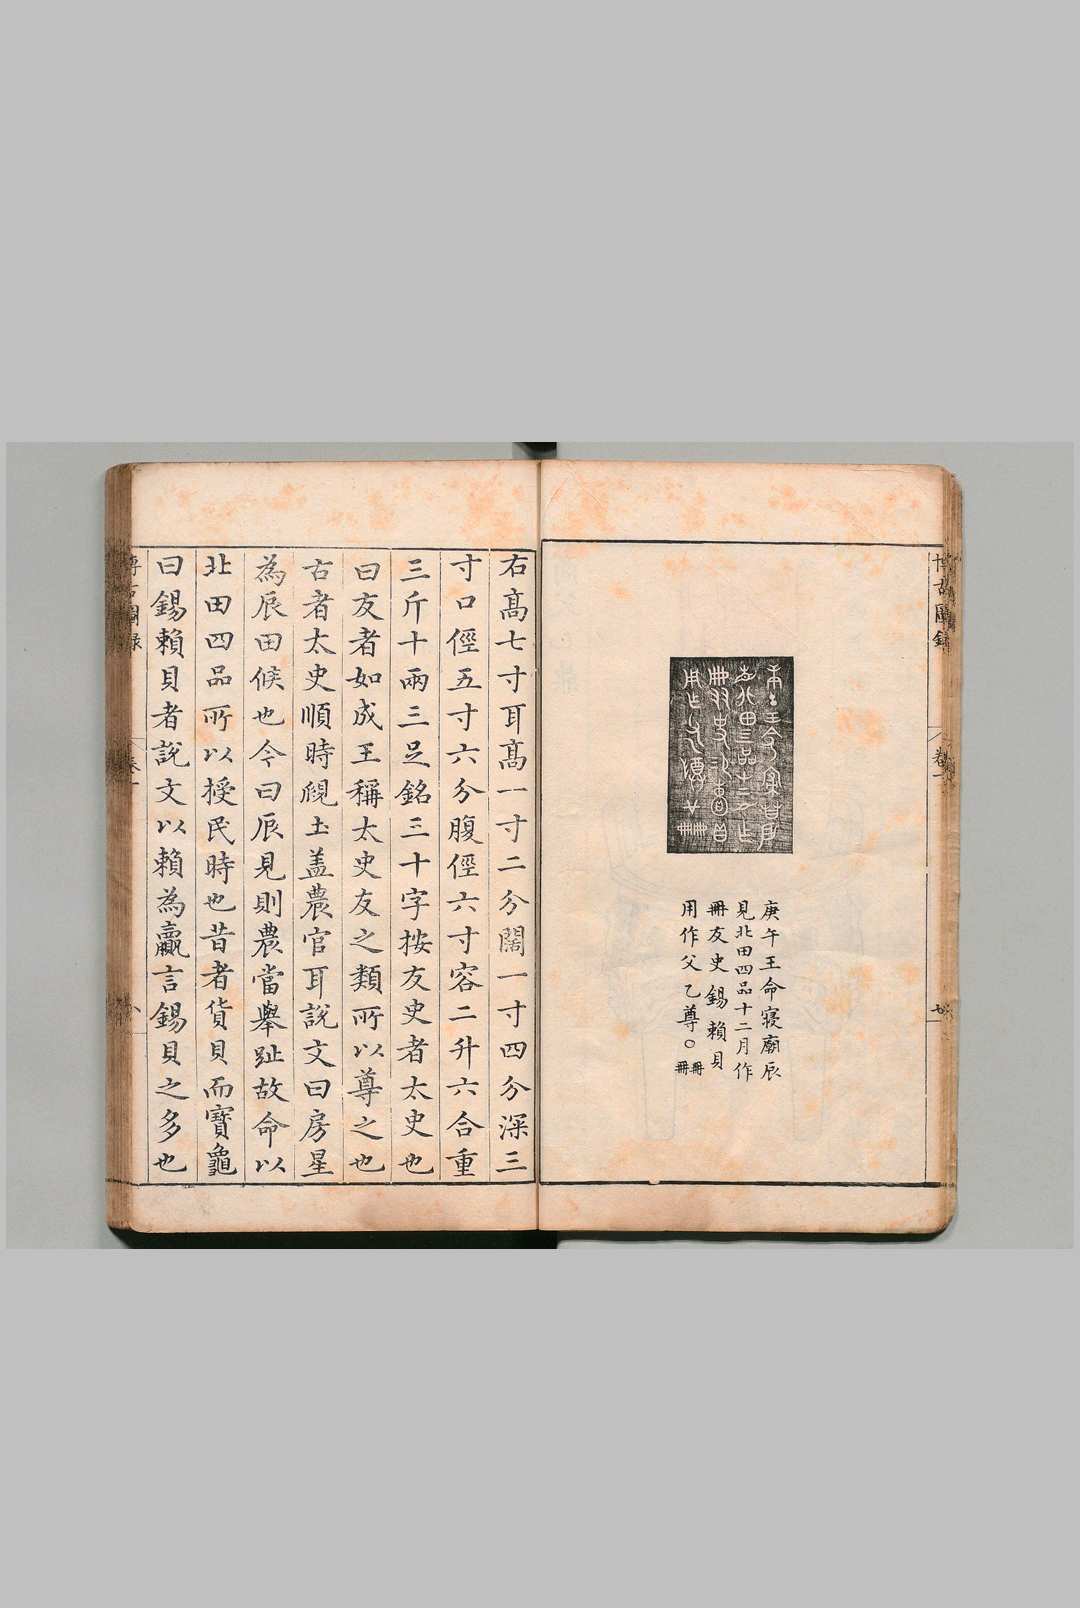 博古圖錄
卷一
庚午王命寢廟辰
見北田四品十二月作
冊友史錫賴貝
用作父乙尊〇冊冊
右高七寸耳高一寸二分闊一寸四分深三
寸口徑五寸六分腹徑六寸容二升六合重
三斤十兩三足銘三十字按友史者太史也
曰友者如成王稱太史友之類所以尊之也
古者太史順時覛土蓋農官耳說文曰房星
為辰田候也今曰辰見則農當舉趾故命以
北田四品所以授民時也昔者貨貝而寶龜
曰錫賴貝者說文以賴為贏言錫貝之多也
博古圖錄
卷一